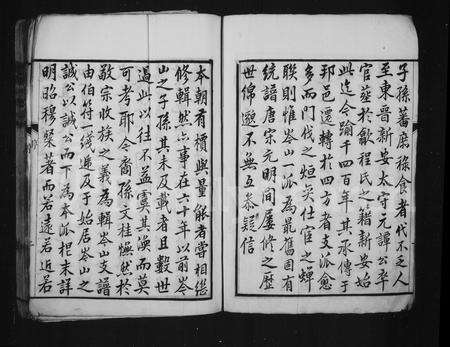 子孫蕃庶祿食者代不乏人
至東晋新安太守元譚公卒
官葬於歙程氏之籍新安始
此迄今踰千四百年其承傳于
邦邑遷轉於四方者支派愈
多而門伐之烜奕仕宦之蟬
聯則惟岑山一派為最舊固有
統譜唐宗元明間屢修之歷
世綿邈不無互忝疑信
本朝有積與量能者嘗相繼
修輯然亦事在六十年以前岑
山之子孫其未及載者且數世
過此以往不益虞其渙而莫
可考耶令裔孫文桂慨然於
敬宗收族之義為輯岑山支譜
由伯符公綫追反于始居岑山之
誠公以誠公而下為本派把末詳
明昭穆粲著而若遠若近若